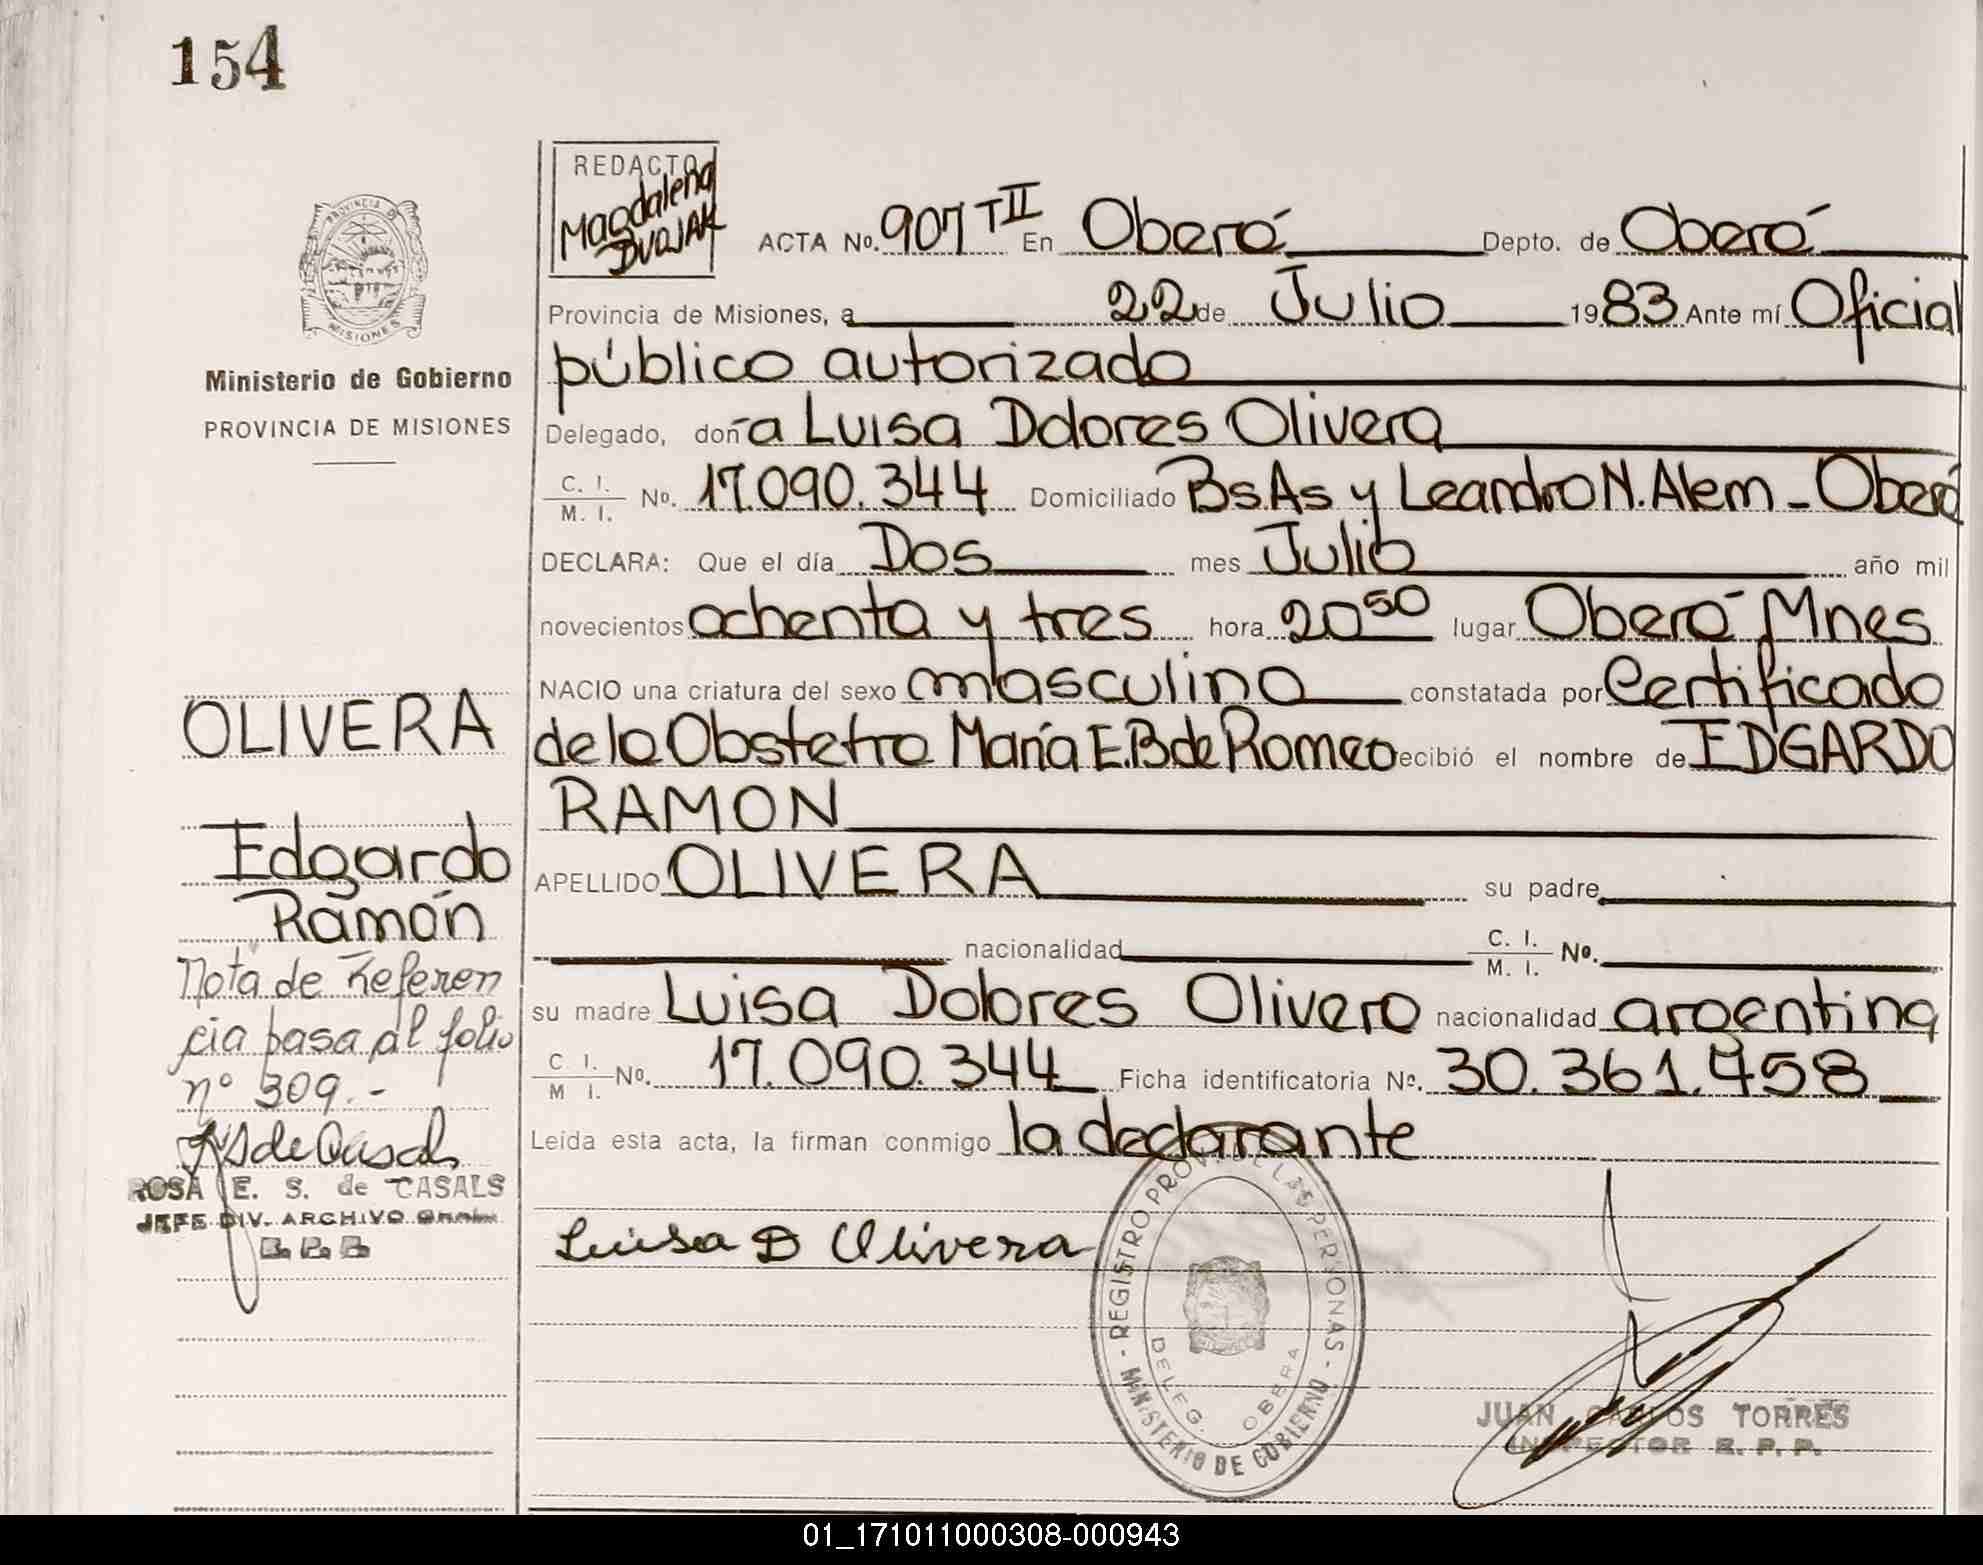 154
REDACTO
Magdalena
DVOJAK
ACTA No. 907 TII En Oberá Depto. de Oberá
Provincia de Misiones, a 22 de Julio 1983 Ante mí Oficial
público autorizado
Delegado, doña Luisa Dolores Olivera
C. I.
M. I. No. 17.090.344 Domiciliado Bs As y Leandro N. Alem - Oberá
DECLARA: Que el día Dos mes Julio año mil
novecientos ochenta y tres hora 20 50 lugar Oberá Mnes
NACIO una criatura del sexo masculino constatada por Certificado
de la Obstetra María E. B de Romeo recibió el nombre de EDGARDO
RAMON
APELLIDO OLIVERA su padre
nacionalidad C. I.
M. I. No.
su madre Luisa Dolores Olivera nacionalidad argentina
C I.
M I. No. 17.090.344 Ficha identificatoria No. 30.361.458
Leída esta acta, la firman conmigo la declarante
Luisa D Olivera
PROVINCIA DE
MISIONES
Ministerio de Gobierno
PROVINCIA DE MISIONES
OLIVERA
Edgardo
Ramón
Nota de Referen
cia pasa al folio
nº 309.-
RS de Casals
ROSA E. S. de CASALS
JEFE DIV. ARCHIVO GRAL.
R. P. P.
- REGISTRO PROV. DE LAS PERSONAS -
MINISTERIO DE GOBIERNO
DELEG. OBERA
JUAN CARLOS TORRES
INSPECTOR R. P. P.
01_171011000308-000943